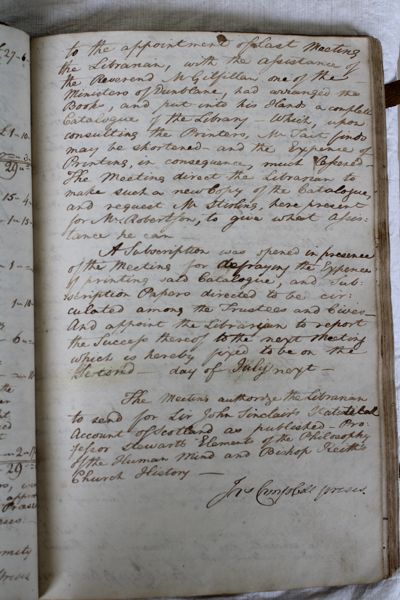 27-6
1-10
29
15-4
1-15
1-
1-10
6
2-
29
to the appointment of last Meeting
the Librarian, with the assistance of
the Reverend Mr Gilfillan one of the
Ministers of Dunblane, had arranged the
Books, and put into his Hands a complete
Catalogue of the Library - Which upon
consulting the Printers, Mr Tait finds
may be shortened - and the Expence of
Printing, in consequence, much lessened -
The Meeting direct the Librarian to
make such a new Copy of the Catalogue,
and request Mr Stirling, here present
for Mr Robertson, to give what assis=
tance he can -
A Subscription was opened in presence
of the Meeting for defraying the Expence
of printing said Catalogue, and Sub=
scription Papers directed to be cir=
culated among the Trustees and Cives -
And appoint the Librarian to report
the Success thereof to the next Meeting
which is hereby fixed to be on the
Second - day of July next -
The Meeting authorize the Librarian
to send for Sir John Sinclair's Statistical
Account of Scotland as published - Pro=
fessor Stewart's Elements of the Philosophy
of the Human Mind and Bishop Keith's
Church History -
Jno Campbell preses.